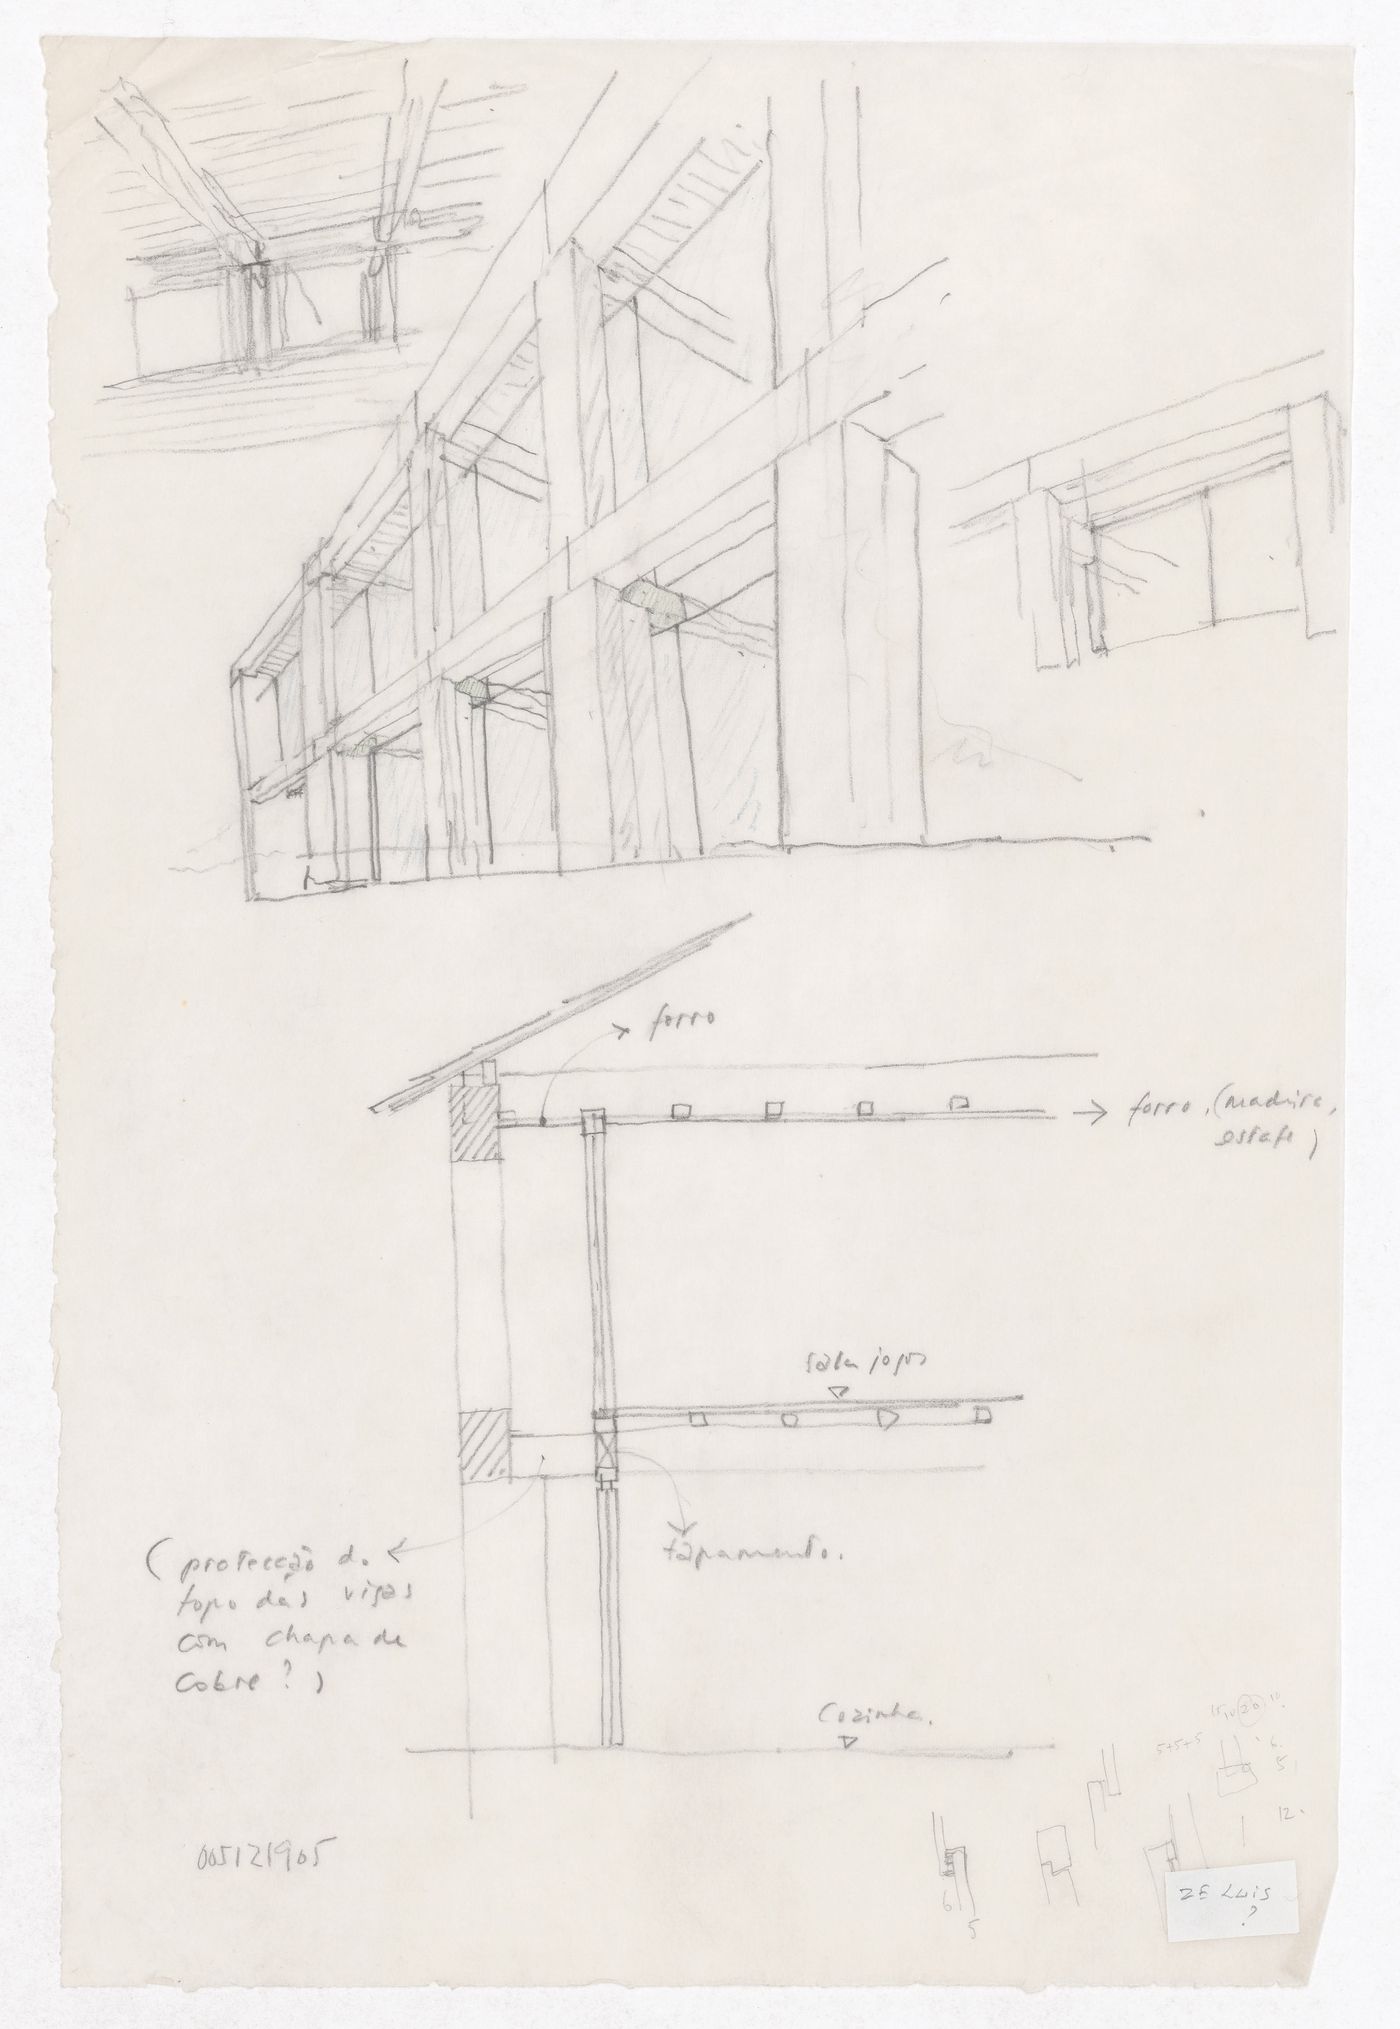 forro
forro, (madeira,
estafe)
sala jogos
(protecção do
topo das vigas
com chapa de
cobre?)
tapamento.
Cozinha.
5+5+5
20
6
5
12
6
5
005121905
ZE LUIS
?